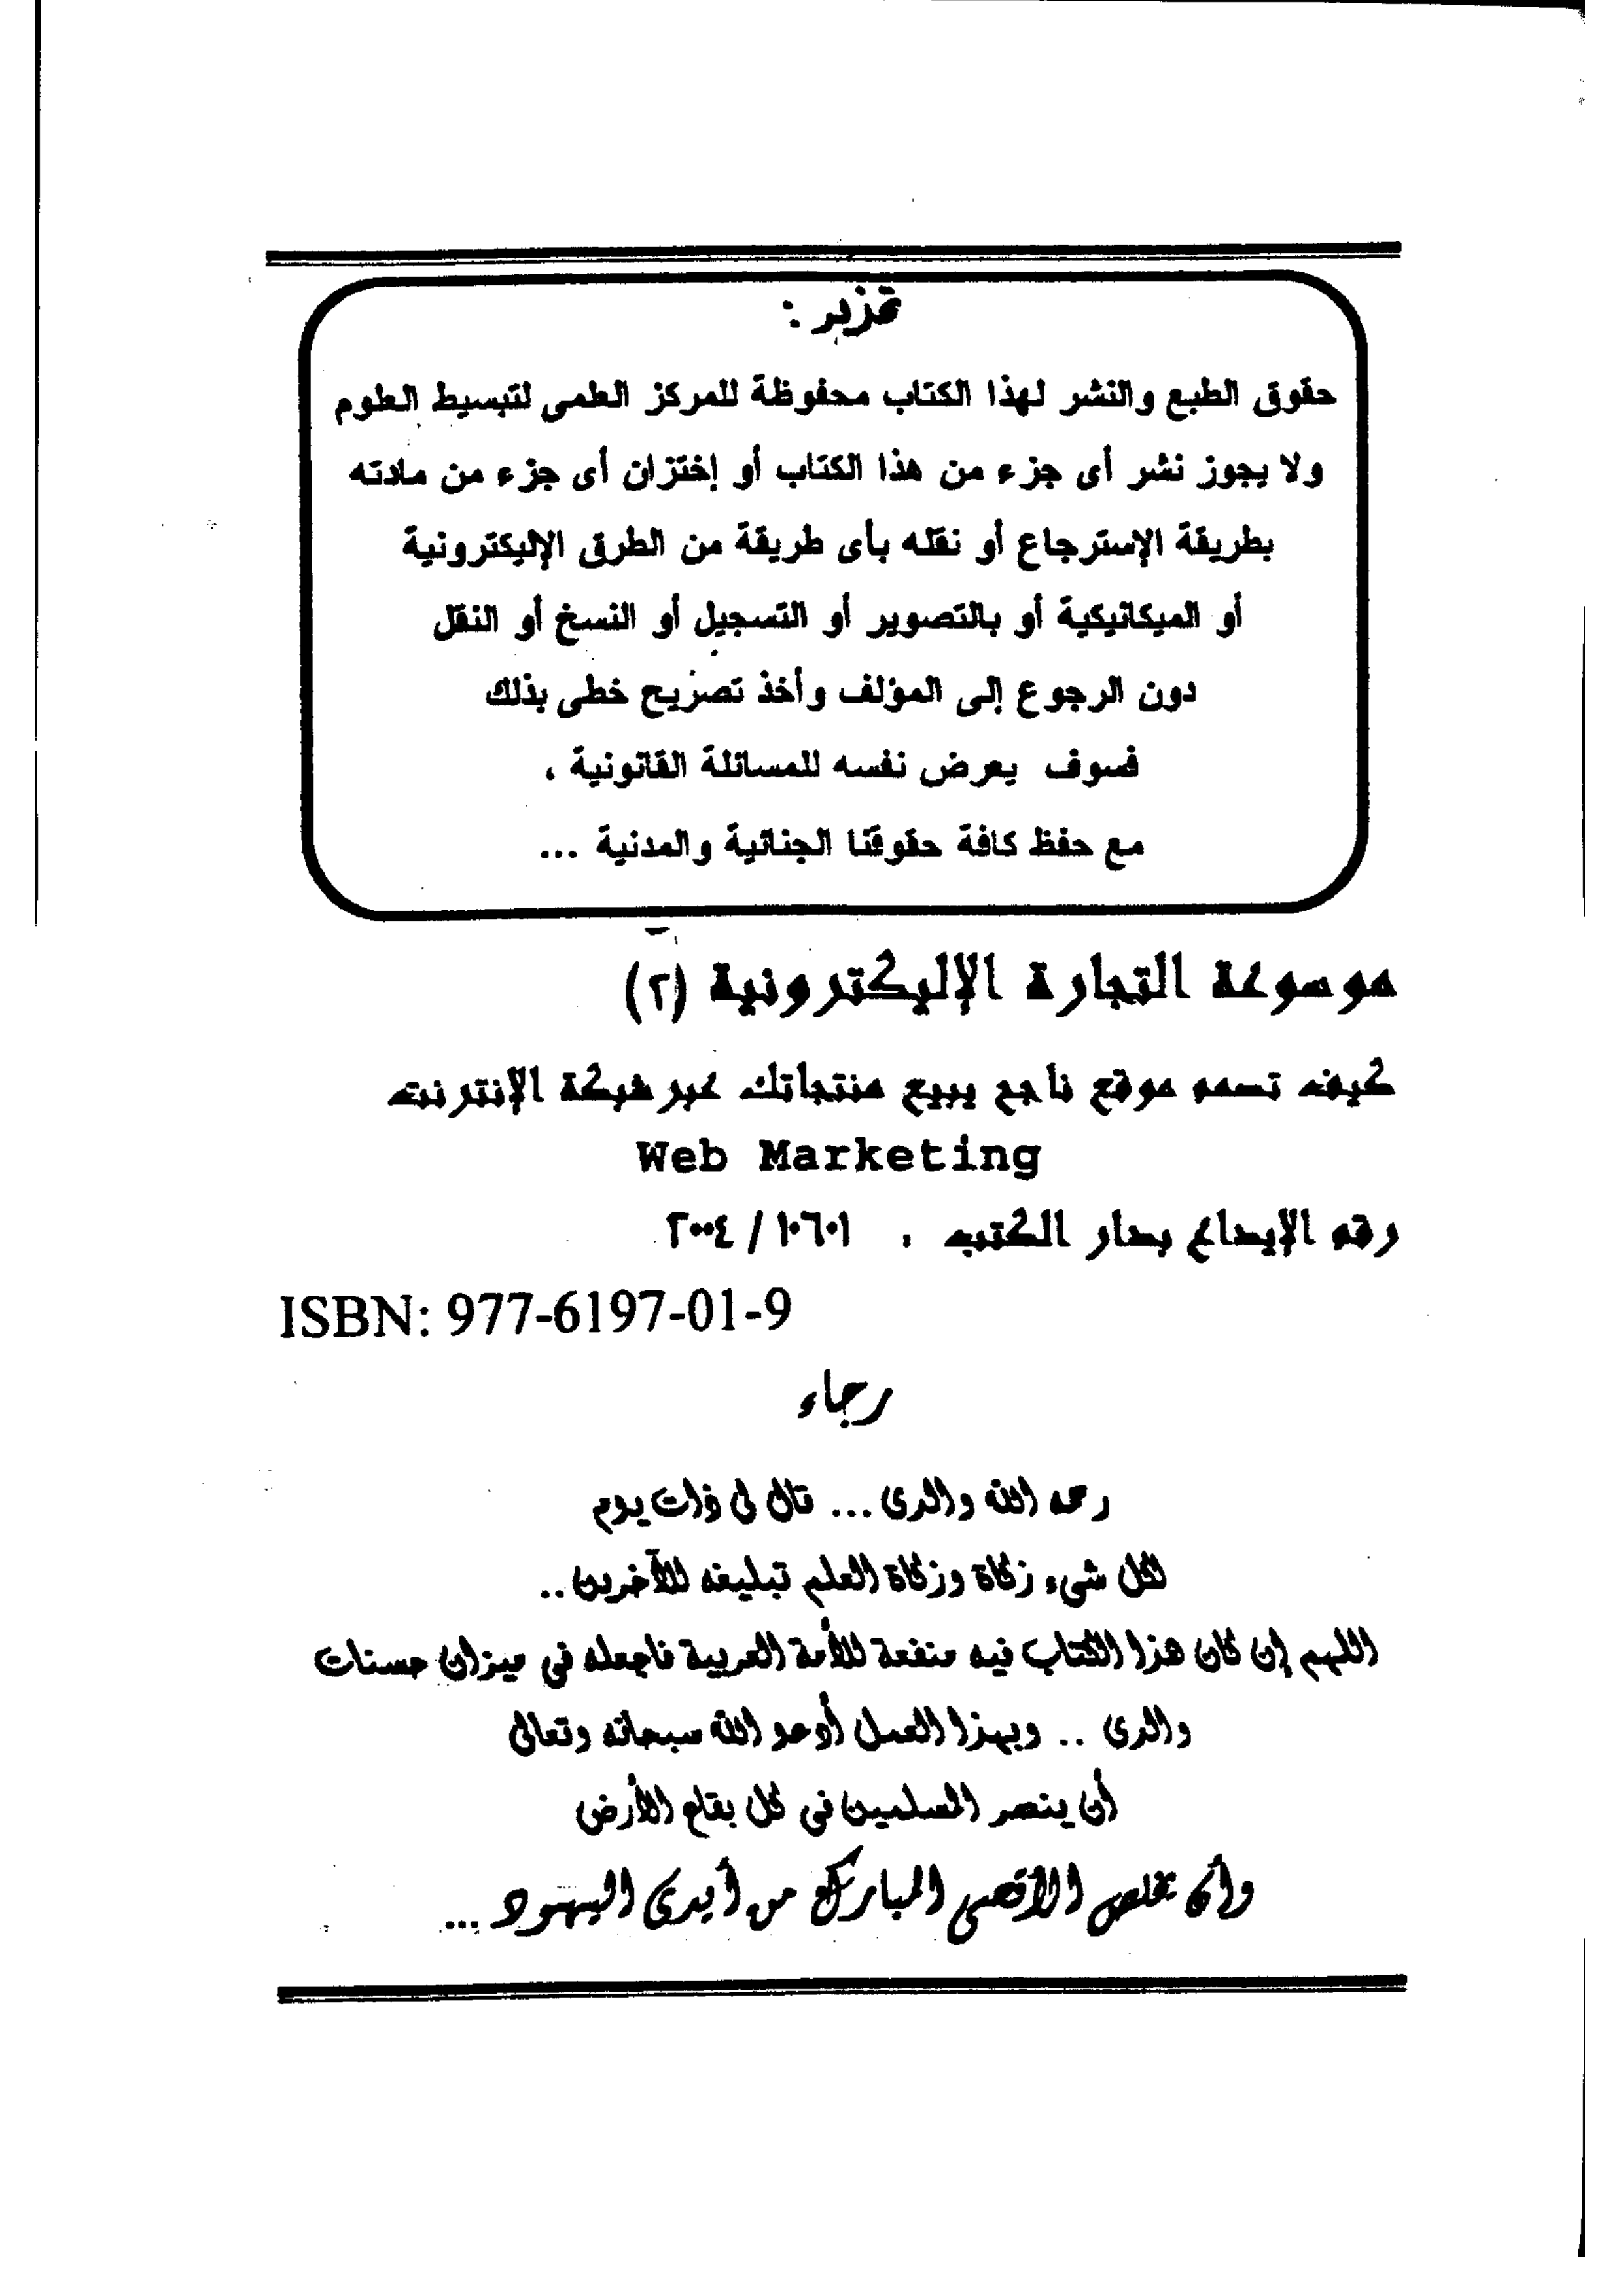 تحذير :
حقوق الطبع والنشر لهذا الكتاب محفوظة للمركز العلمى لتبسيط العلوم
ولا يجوز نشر أى جزء من هذا الكتاب أو إختزان أى جزء من مادته
بطريقة الإسترجاع أو نقله بأى طريقة من الطرق الإليكترونية
أو الميكانيكية أو بالتصوير أو التسجيل أو النسخ أو النقل
دون الرجوع إلى المؤلف وأخذ تصريح خطى بذلك
فسوف يعرض نفسه للمسائلة القانونية ،
مع حفظ كافة حقوقنا الجنائية والمدنية ...
موسوعة التجارة الإليكترونية (٢)
كيف تصمم موقع ناجح يبيع منتجاتك عبر شبكة الإنترنت
Web Marketing
رقم الإيداع بدار الكتب : ١٠٦٠١ / ٢٠٠٤
ISBN: 977-6197-01-9
رجاء
رحمه الله والدى ... قال لى ذات يوم
لكل شىء زكاة وزكاة العلم تبليغه للآخرين ..
اللهم إن كان هذا الكتاب فيه منفعة للأمة العربية فاجعله فى ميزان حسنات
والدى .. وبهذا العمل أدعو الله سبحانه وتعالى
أن ينصر المسلمين فى كل بقاع الأرض
وأن يخلص الأقصى المبارك من أيدى اليهود ...